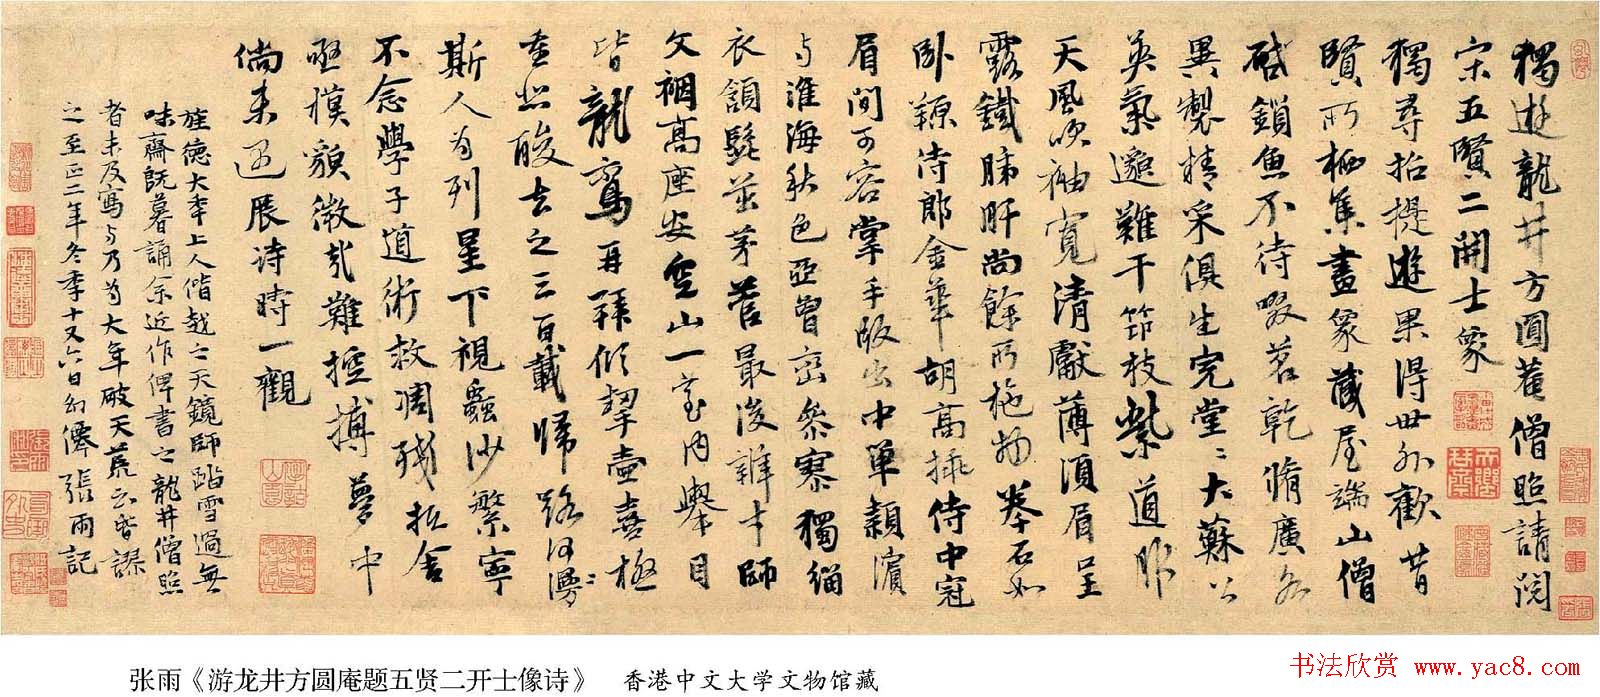 獨遊龍井方圓菴僧照請閱
宋五賢二開士象
獨尋招提遊果得世外歡昔
賢所栖集畫象藏屋端山僧
啓鎖魚不待啜茗乾脩廣各
異製精采俱生完堂〻大蘇公
英氣邈難干節枝紫道服
天風吹袖寬清獻薄須眉呈
露鐵肺肝尚餘所施物拳石如
臥羱侍郎金華胡高插侍中冠
眉間可容掌手版出中單潁濱
與淮海秋色亞曾巒參寥獨緇
衣頷髭茁茅菅最後辯才師
文裀高座安空山一室內舉目
皆龍鸞再拜倾挈壺喜極
悲酸去之三百載歸路何漫〻
斯人為列星下視蟲沙繁寧
不念學子道術救凋殘抵舍
亟模貌微哉難摶夢中
倘未遇展诗時一觀
旌德大本上人偕越之天鏡師踏雪過無
味齋既暮誦余近作俾書之龍井僧照
者未及寫与乃為大年破天荒云皆謬
之至正二年冬季十又六日幻僊張雨記
张雨《游龙井方圆庵题五贤二开士像诗》 香港中文大学文物馆藏
书法欣赏 www.yac8.com